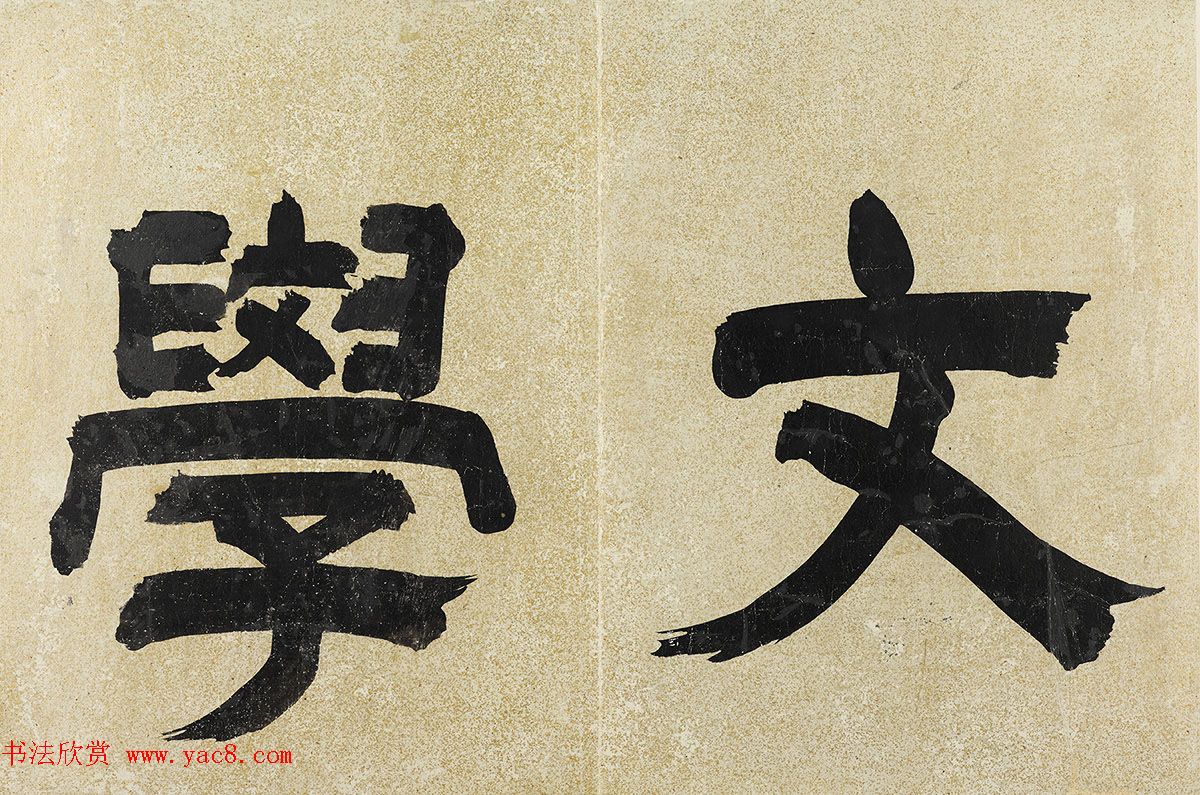 文學
书法欣赏 www.yac8.com